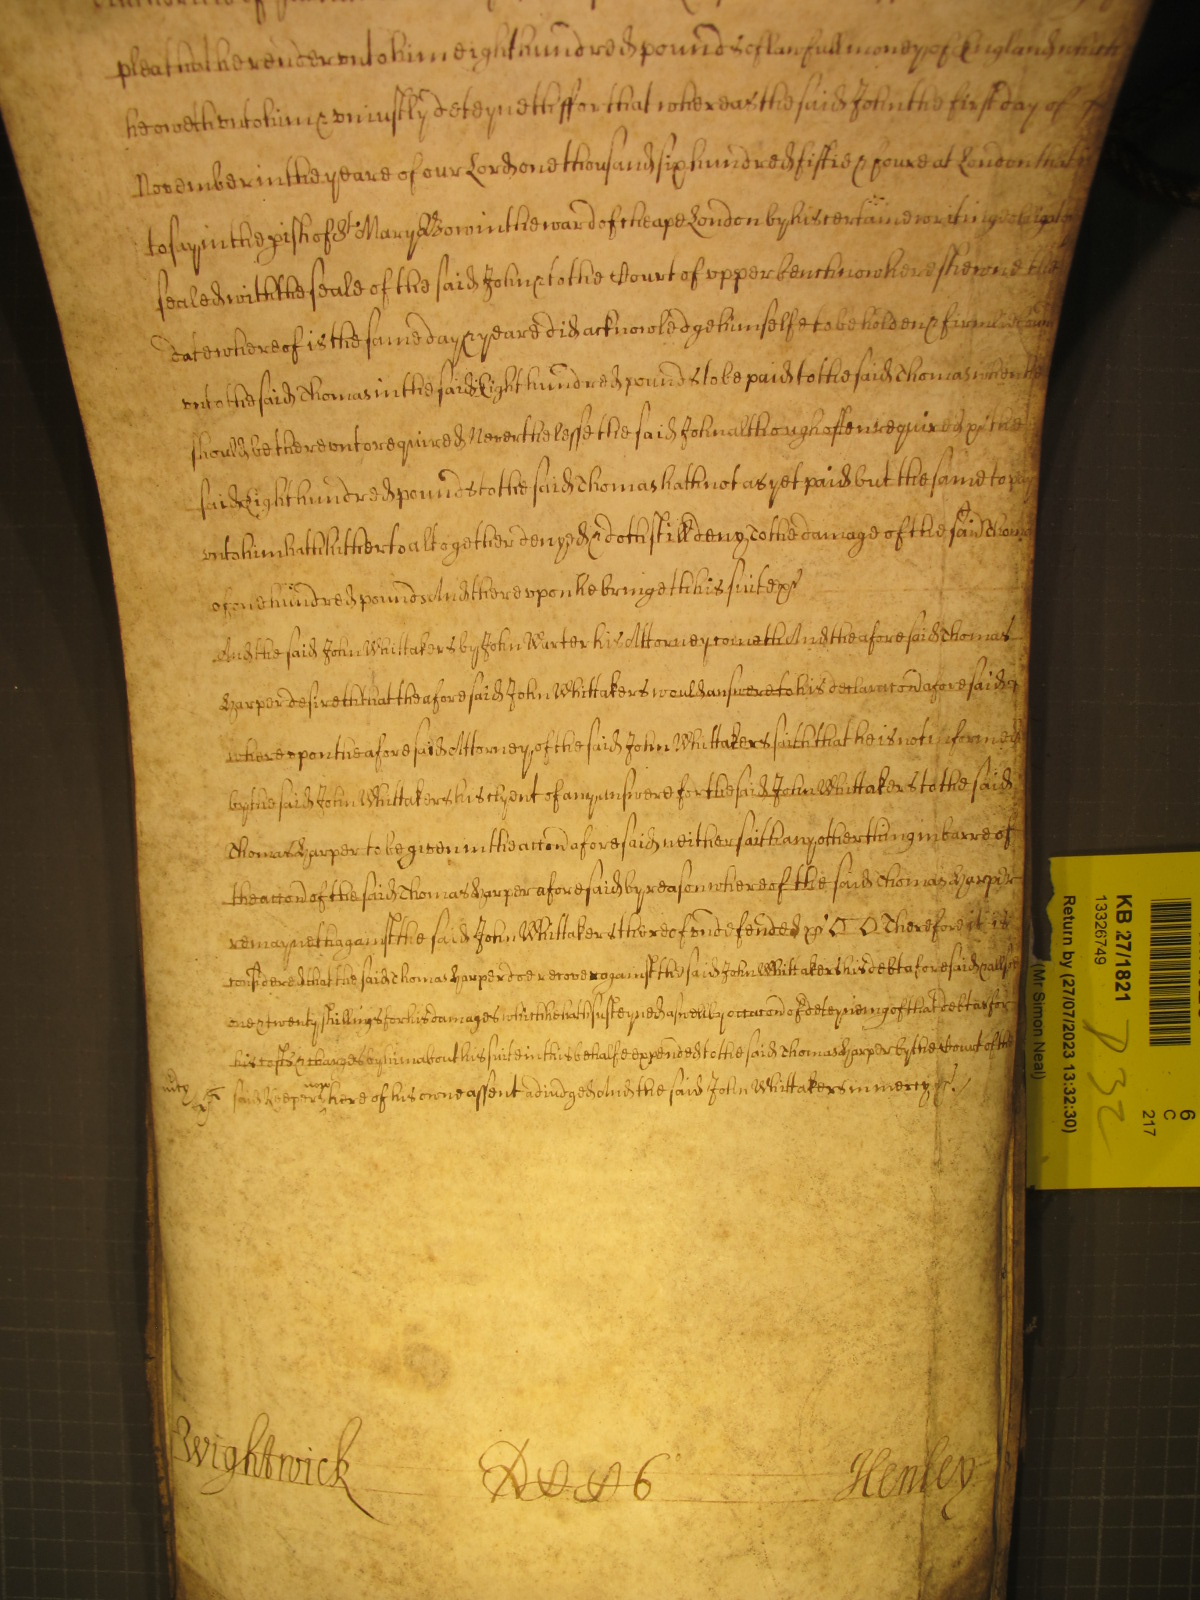 plea that he render unto him eight hundred pounds of lawfull money of England which
he oweth unto him & uniustly deteyneth ffor that whereas the said John the first day of
November in the yeare of our Lord one thousand six hundred fiftie & foure at London that is
to say in the pish of St Mary Bow in the ward of Cheape London by his certaine writing obligatory
sealed with the seale of the said John & to the Court of upper bench now here shewne the
date whereof is the same day & yeare did acknowledge himselfe to be holden & firmly
unto the said Thomas in the said Eight hundred pounds to be paid to the said Thomas when he
should be thereunto required Neverthelesse the said John although often required &c the
said Eight hundred pounds to the said Thomas hath not as yet paid but the same to pay
unto him hath hitherto altogether denyed & doth still deny To the damage of the said Thomas
of one hundred pounds And thereupon he bringeth his suite &c
And the said John Whittakers by John Warter his Attorney cometh And the aforesaid Thomas
Harper desireth that the aforesaid John Whittakers would answere to his declaracon aforesaid &
whereupon the aforesaid Attorney of the said John Whittakers saith that he is not informed
by the said John Whittakers his clyent of any answere for the said John Whittakers to the said
Thomas Harper to be given in the accon aforesaid neither saith any other thing in barre of
the accon of the said Thomas Harper aforesaid by reason whereof the said Thomas Harper
remayneth against the said John Whittakers thereof undefended &c Therefore it is
considered that the said Thomas Harper doe recover against the said John Whittakers his debt aforesaid & allsoe
one & twenty shillings for his damages which he hath susteyned aswell by occacon of deteyneing of that debt as for
his costs & charges by him about his suite in this behalfe expended to the said Thomas Harper by the Court of the
mcy said Keepers now here of his owne assent adiudged And the said John Whittakers in mercy &c
Wightwick 6 Henley
KB 27/1821
13326749
6
C
217
Return by (27/07/2023 13:32:30)
(Mr Simon Neal)
P 32